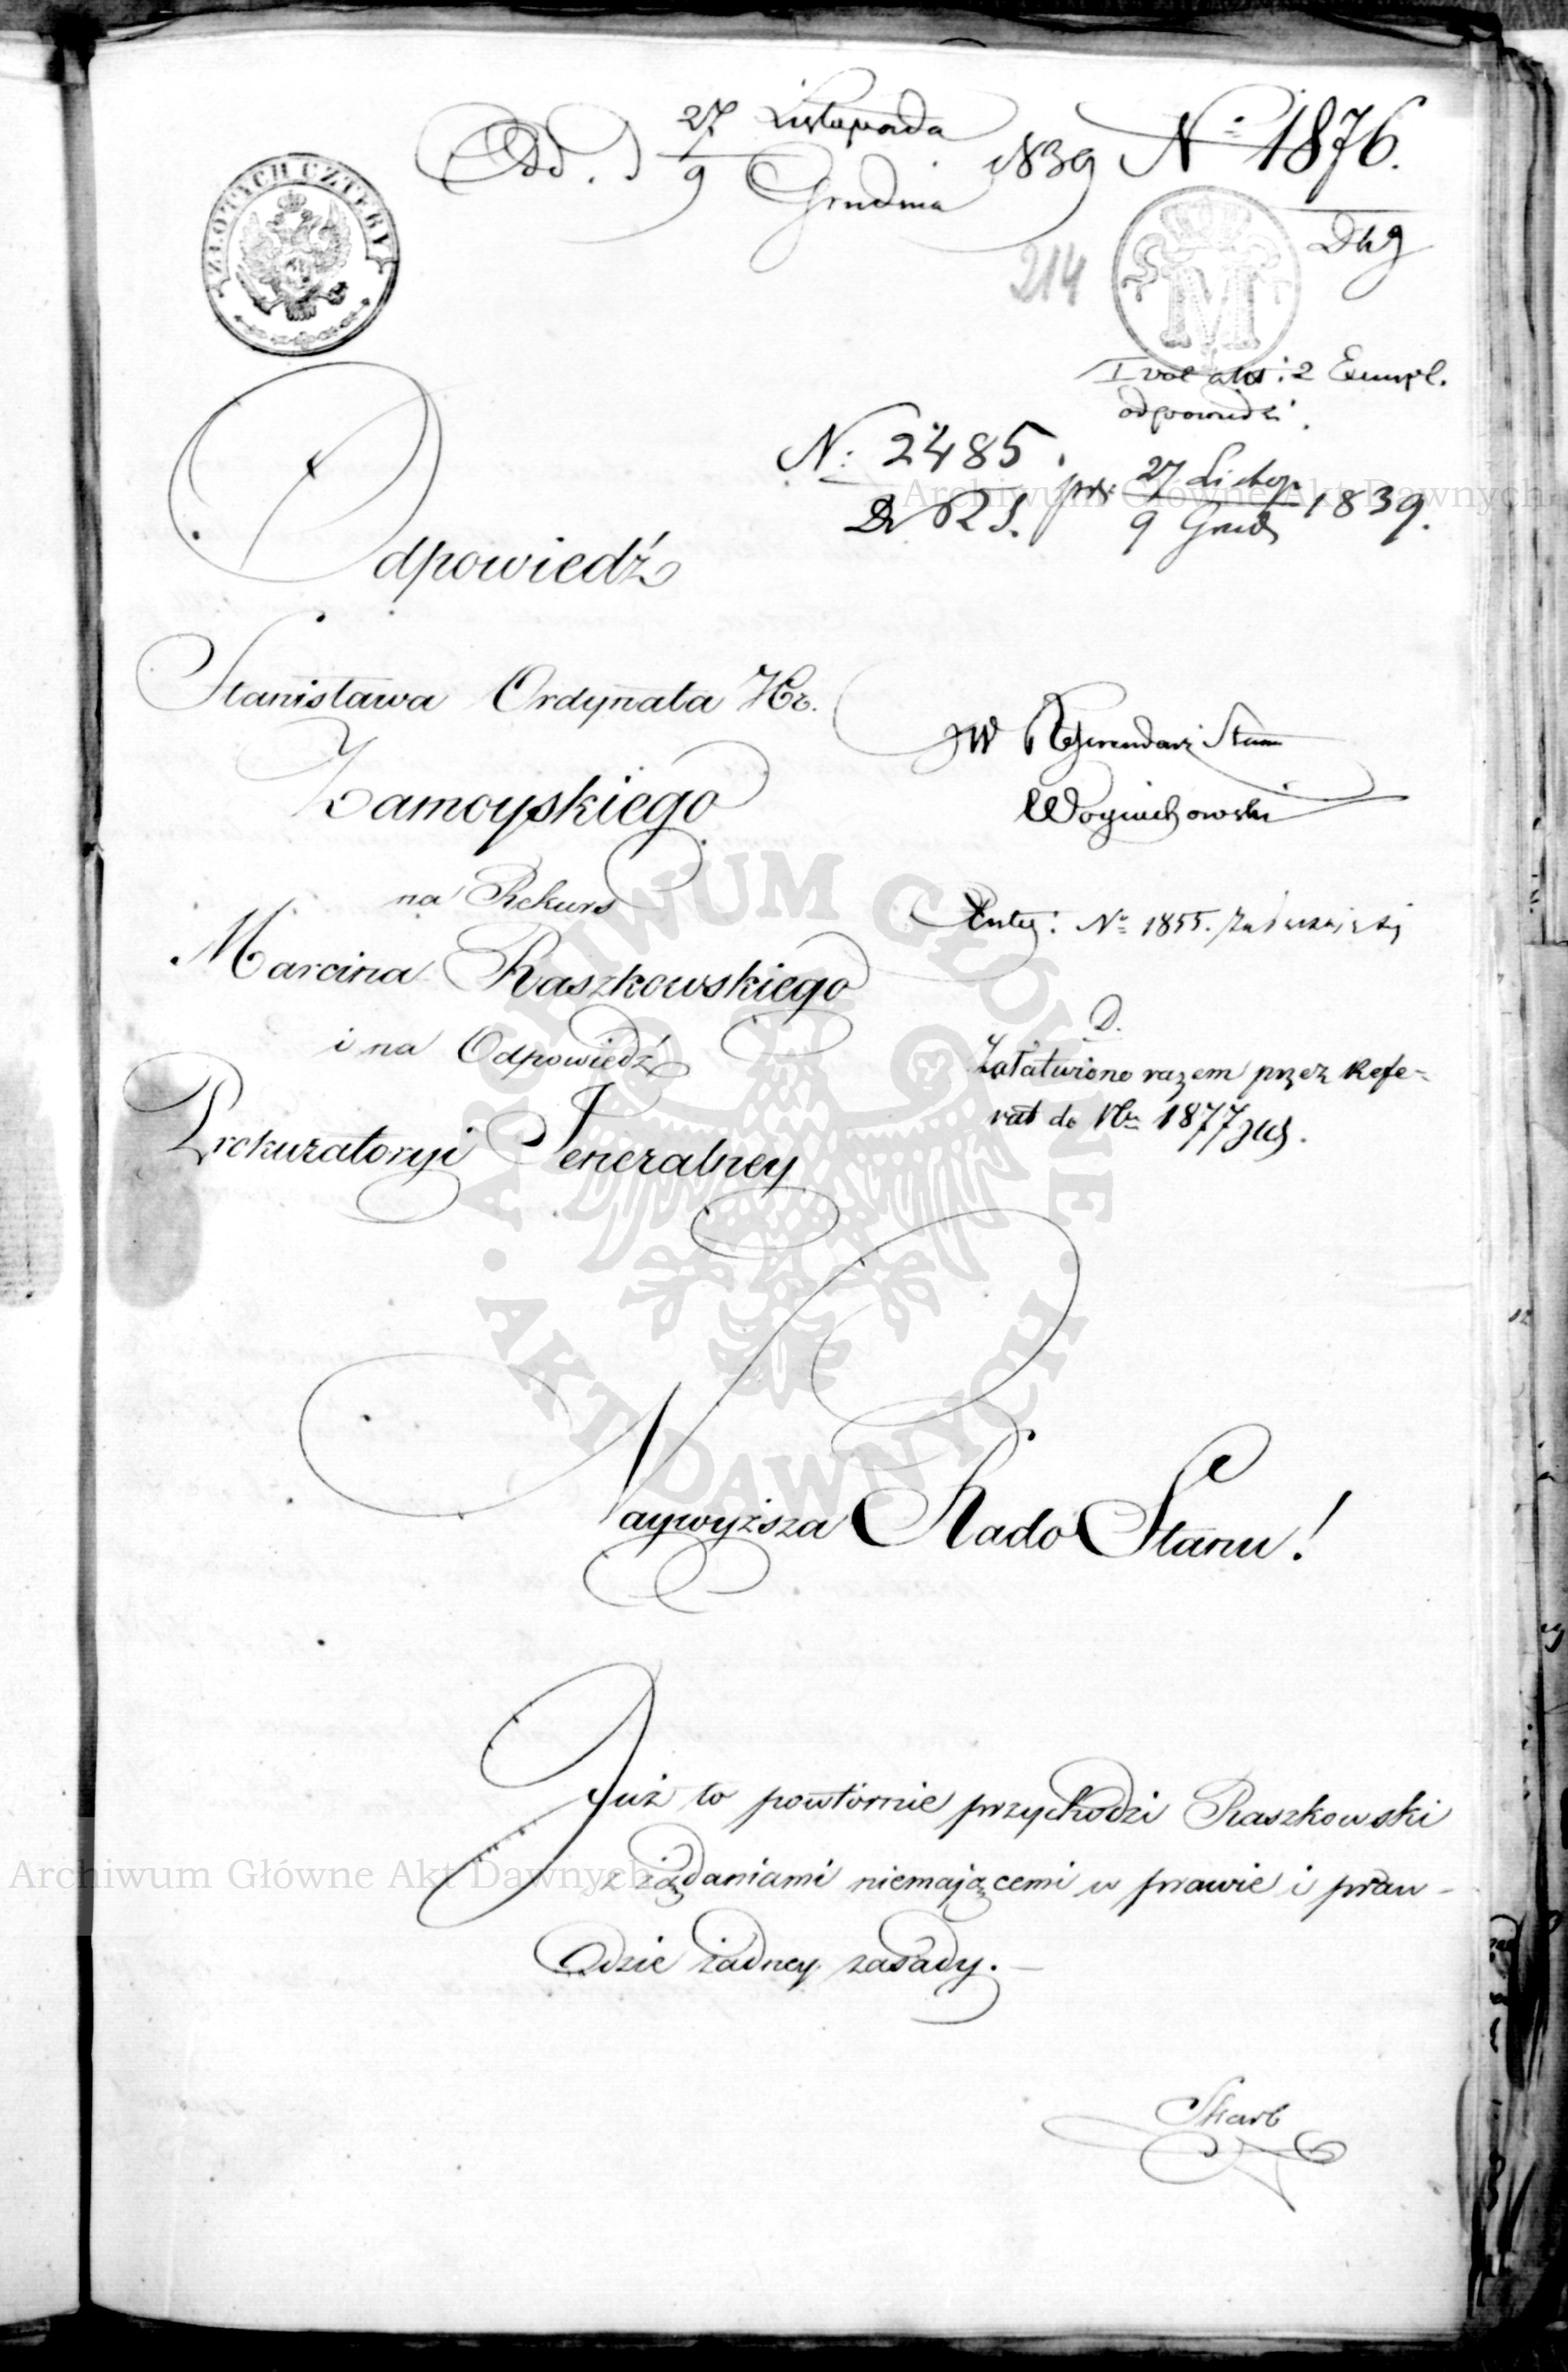 Odd. d 27 Listopada 1839 N° 1876.
9 Grudnia
ZŁOTYCH CZTERY
214
M
I vol akt: 2 Exempl.
odpowiedzi.
N: 2485. pr: 27 Listop 1839.
9 Grud
Odpowiedź
Stanisława Ordynata Hr.
Zamoyskiego
na Rekurs
Marcina Raszkowskiego
i na Odpowiedź
Prokuratoryi Jeneralney
JW Referendarz Stanu
Woyciechowski
N° 1855.
D.
Załatwiono razem przez Refe-
rat do Nru 1877
Naywyższa Rado Stanu!
Już to powtórnie przychodzi Raszkowski
z żądaniami niemającemi w prawie i praw-
dzie żadney zasady.—
Skarb
Archiwum Główne Akt Dawnych
ARCHIWUM GŁÓWNE AKT DAWNYCH
Archiwum Główne Akt Dawnych